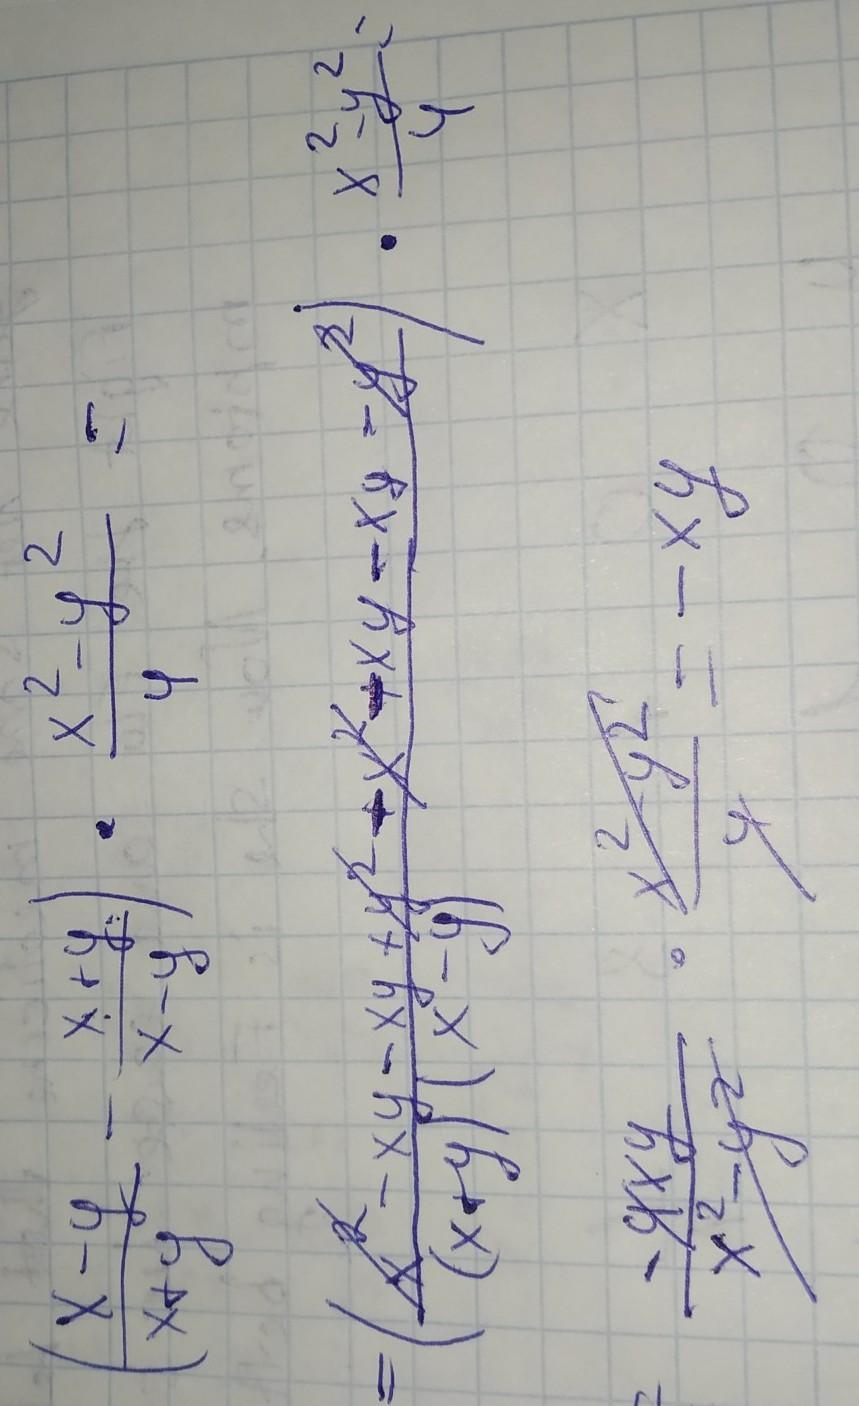 ((x-y)/(x+y) - (x+y)/(x-y)) · (x²-y²)/4 =
= ((x² - xy - xy + y² + x² + xy - xy - y²)/((x+y)(x-y))) · (x²-y²)/4 =
= (-4xy)/(x²-y²) · (x²-y²)/4 = -xy